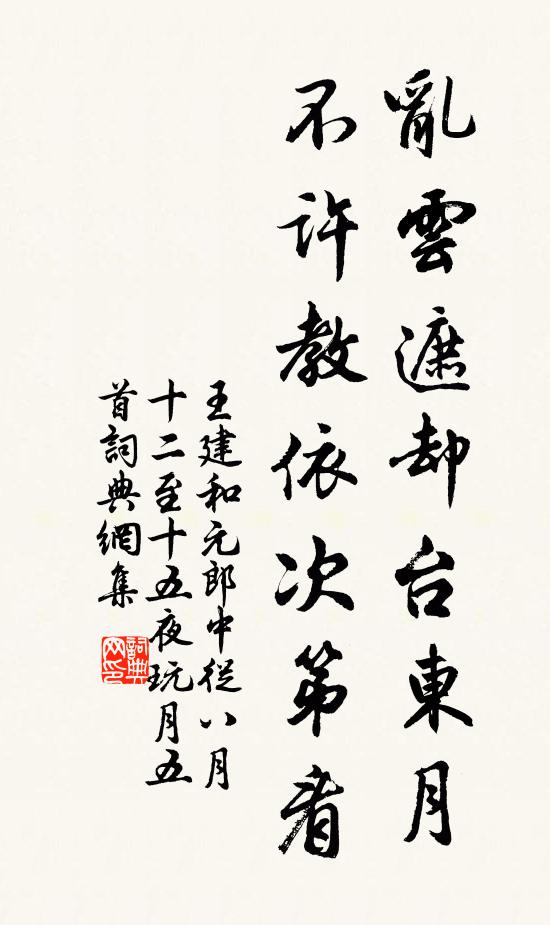 亂雲遮却台東月
不許教依次第看
王建和元郎中從八月
十二至十五夜玩月五
首詞典網集
詞典
网印